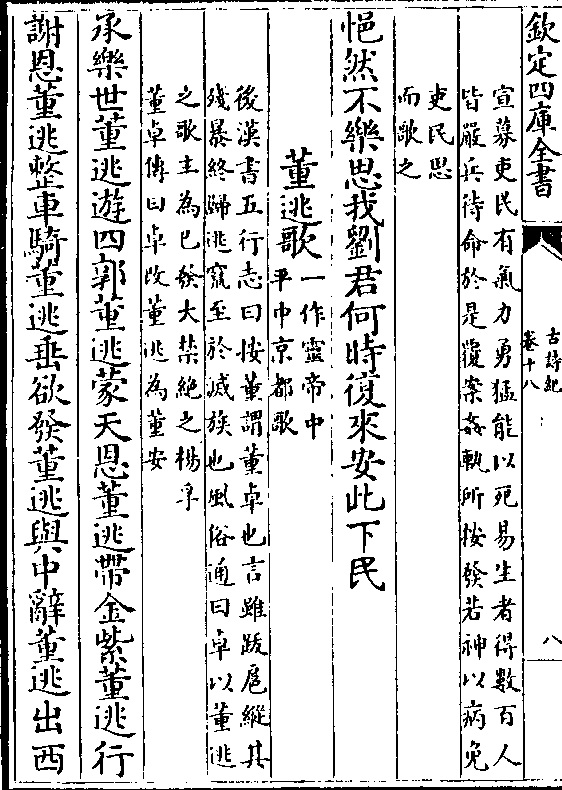 欽定四庫全書
古詩紀
卷十八
八
宣募吏民有氣力勇猛能以死易生者得數百人
皆嚴兵待命於是覆案姦軌所按發若神以病免
吏民思
而歌之
悒然不樂思我劉君何時復來安此下民
董逃歌
一作靈帝中
平中京都歌
後漢書五行志曰按董謂董卓也言雖跋扈縱其
殘暴終歸逃竄至於滅族也風俗通曰卓以董逃
之歌主為已發大禁絕之楊孚
董卓傳曰卓改董逃為董安
承樂世董逃遊四郭董逃蒙天恩董逃帶金紫董逃行
謝恩董逃整車騎董逃垂欲發董逃與中辭董逃出西